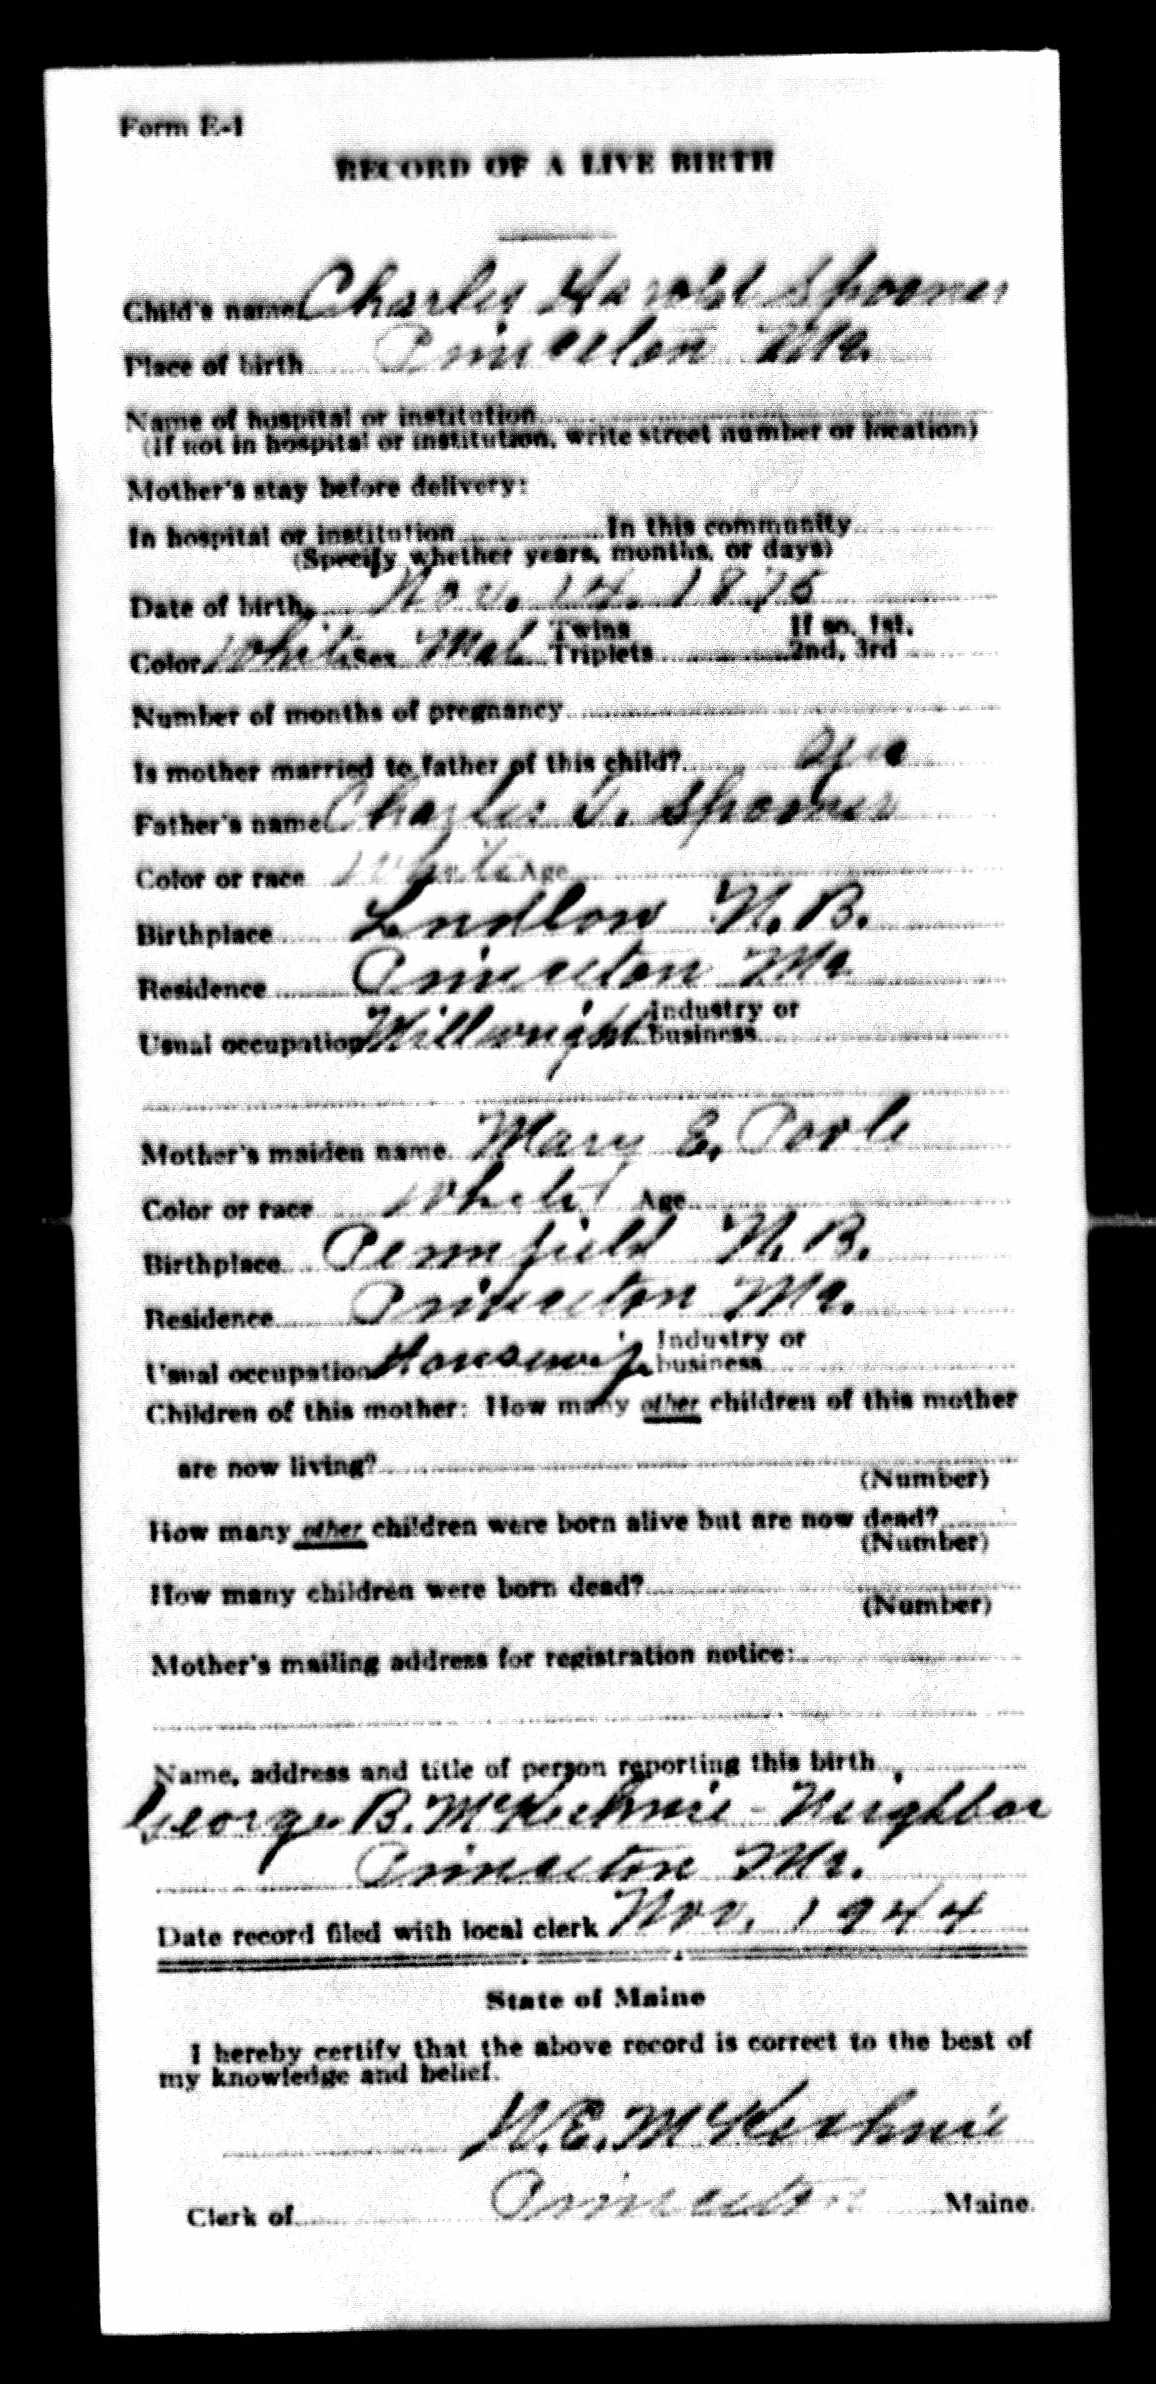 Form E-1
RECORD OF A LIVE BIRTH
Child's name Charles Harold Spooner
Place of birth Princeton Me.
Name of hospital or institution
(If not in hospital or institution, write street number or location)
Mother's stay before delivery:
In hospital or institution In this community
(Specify whether years, months, or days)
Date of birth Nov. 14. 1876
Color White Sex Mal Twins Triplets If so, 1st, 2nd, 3rd
Number of months of pregnancy
Is mother married to father of this child? Yes
Father's name Charles Spooner
Color or race White Age
Birthplace Ludlow N. B.
Residence Princeton Me
Usual occupation Millwright Industry or business
Mother's maiden name Mary E. Poole
Color or race White Age
Birthplace Pennfield N. B.
Residence Princeton Me.
Usual occupation Housewife Industry or business
Children of this mother: How many other children of this mother
are now living?
(Number)
How many other children were born alive but are now dead?
(Number)
How many children were born dead?
(Number)
Mother's mailing address for registration notice:
Name, address and title of person reporting this birth
George B. McKechnie - Neighbor
Princeton Me.
Date record filed with local clerk Nov. 1944
State of Maine
I hereby certify that the above record is correct to the best of
my knowledge and belief.
W. E. McKechnie
Clerk of Princeton Maine.